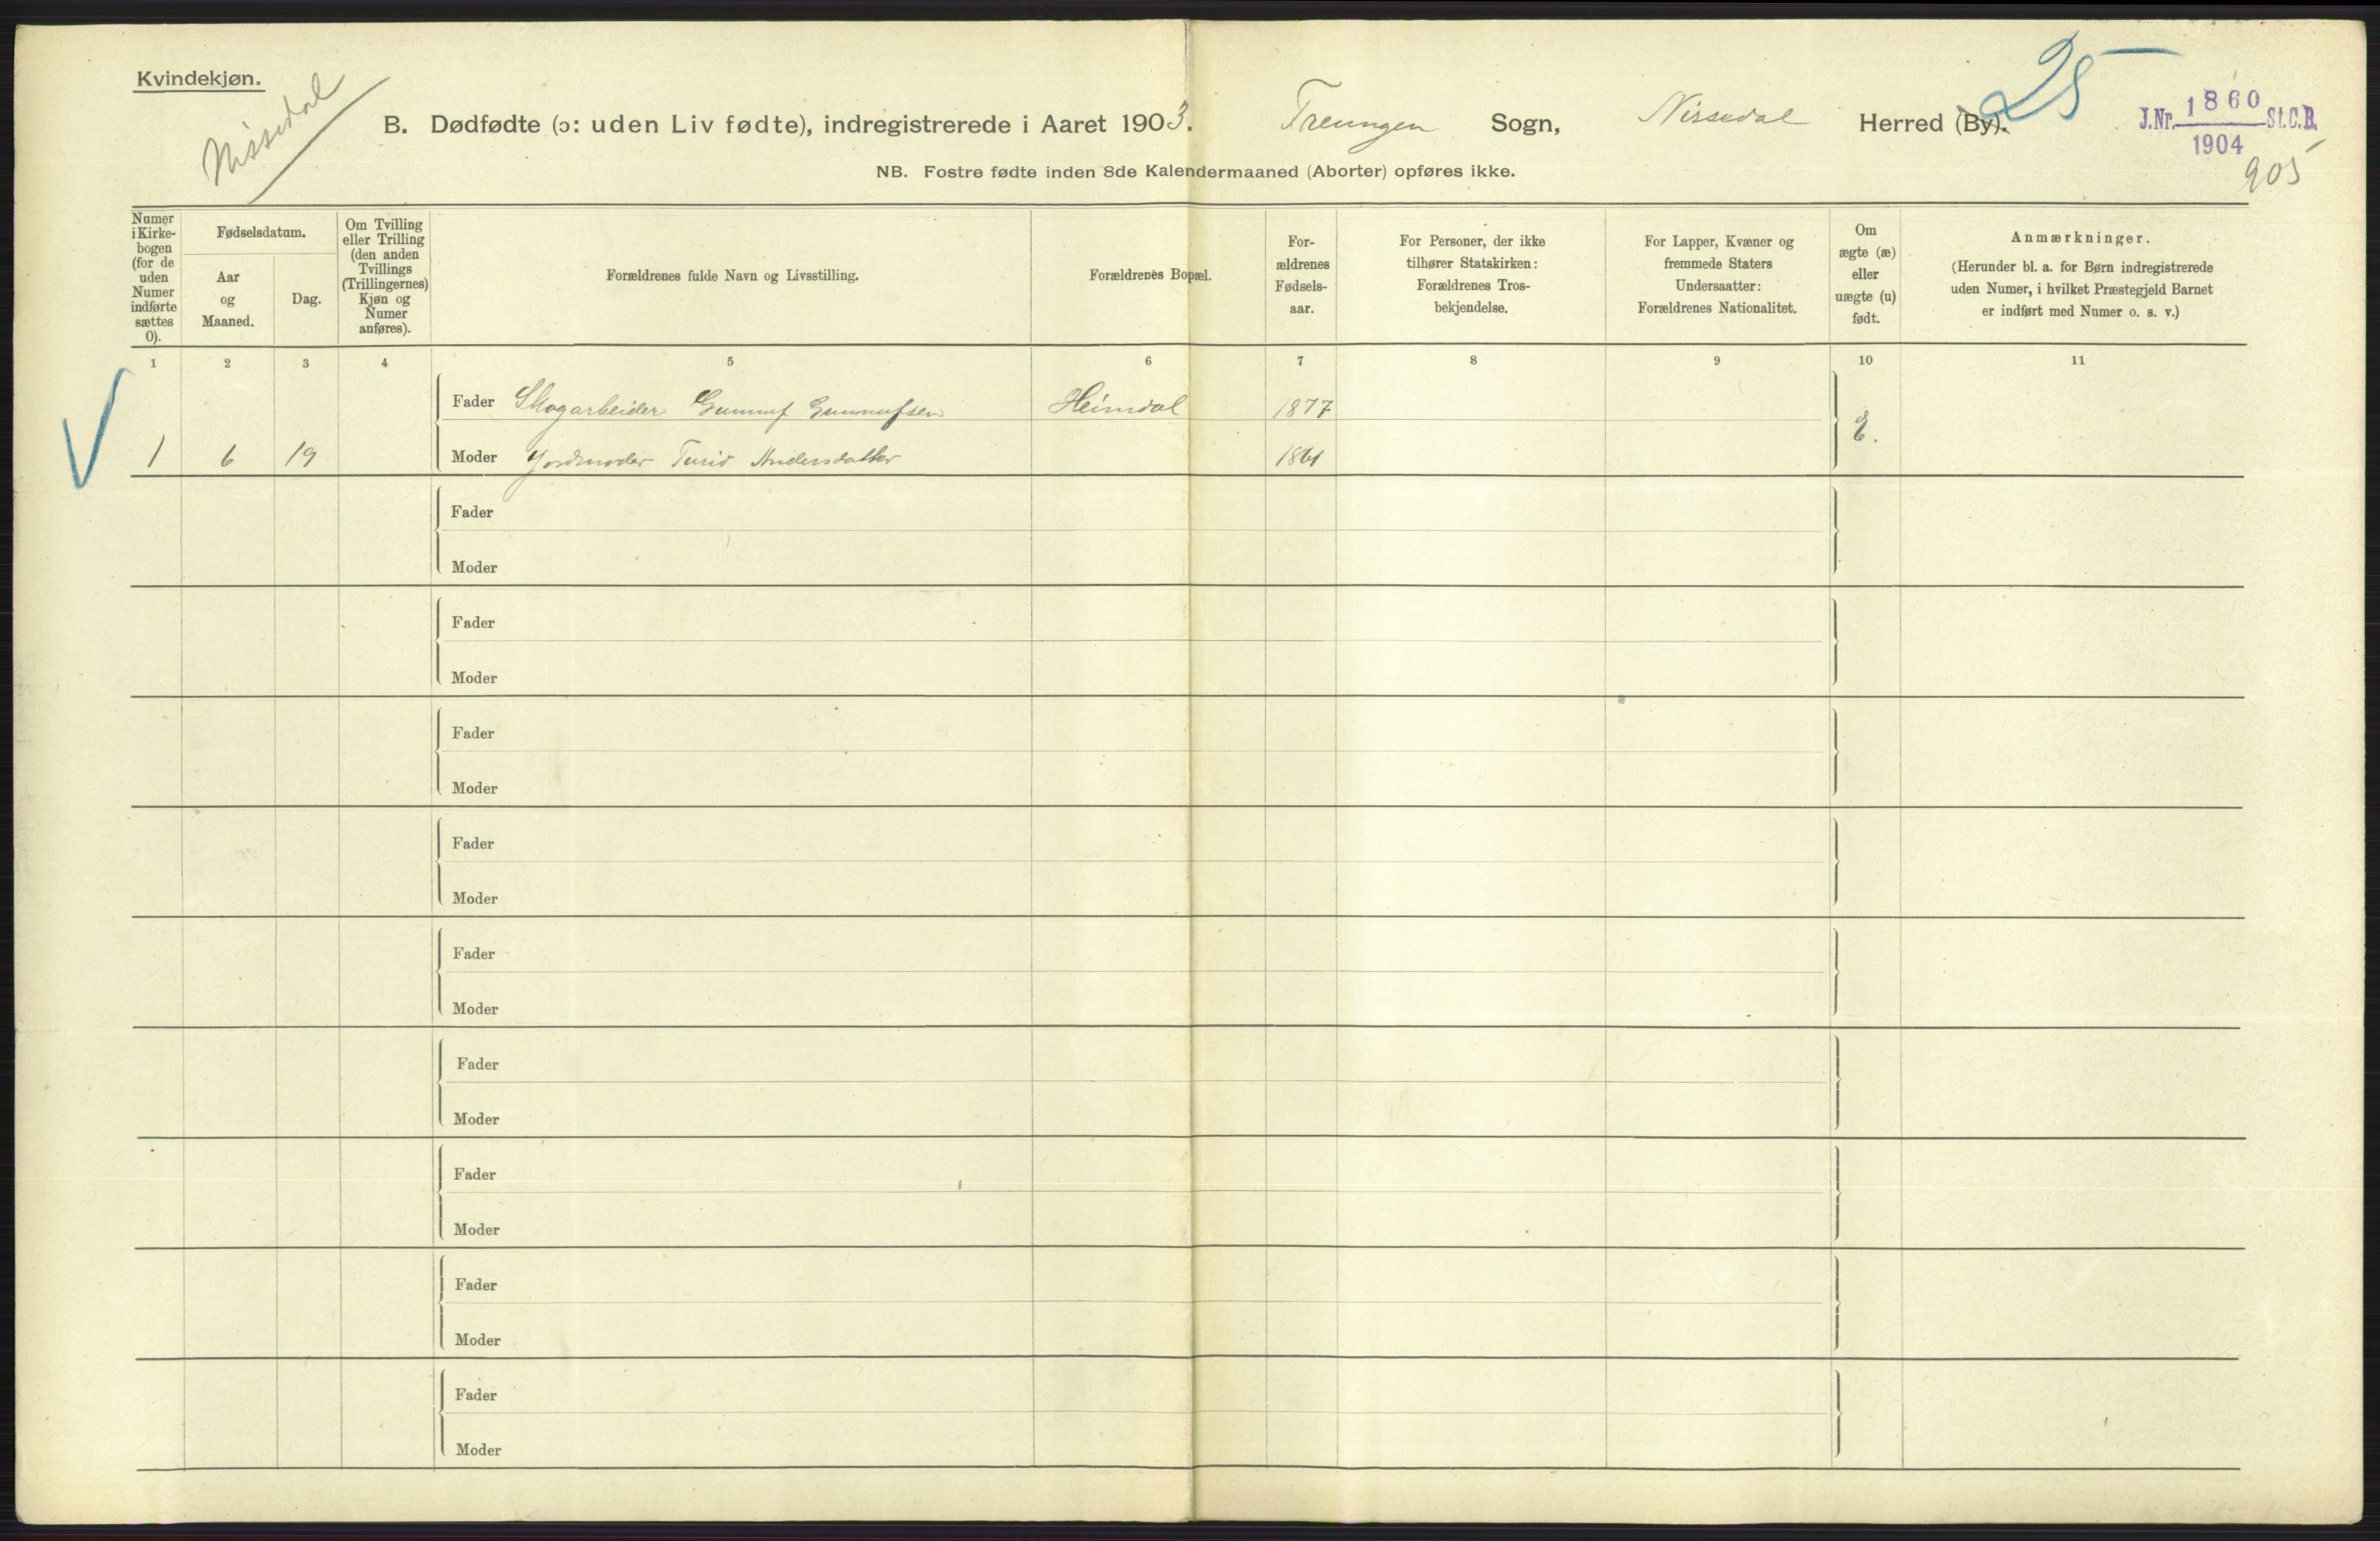 Kvindekjøn.
Nissedal
B. Dødfødte (ɔ: uden Liv fødte), indregistrerede i Aaret 1903. Treungen Sogn, Nissedal Herred (By).
25
J.Nr. 1860 St.C.B.
1904
905
NB. Fostre fødte inden 8de Kalendermaaned (Aborter) opføres ikke.
Numer
i Kirke-
bogen
(for de
uden
Numer
indførte
sættes
0).
Fødselsdatum.
Aar
og
Maaned.
Dag.
Om Tvilling
eller Trilling
(den anden
Tvillings
(Trillingernes)
Kjøn og
Numer
anføres).
Forældrenes fulde Navn og Livsstilling.
Forældrenes Bopæl.
For-
ældrenes
Fødsels-
aar.
For Personer, der ikke
tilhører Statskirken:
Forældrenes Tros-
bekjendelse.
For Lapper, Kvæner og
fremmede Staters
Undersaatter:
Forældrenes Nationalitet.
Om
ægte (æ)
eller
uægte (u)
født.
Anmærkninger.
(Herunder bl. a. for Børn indregistrerede
uden Numer, i hvilket Præstegjeld Barnet
er indført med Numer o. s. v.)
1 2 3 4 5 6 7 8 9 10 11
Fader Skogarbeider Gunnuf Gunnufsen Heimdal 1877
1 6 19 Moder Jordmoder Turid Andersdatter 1861
Fader
Moder
Fader
Moder
Fader
Moder
Fader
Moder
Fader
Moder
Fader
Moder
Fader
Moder
Fader
Moder
Fader
Moder